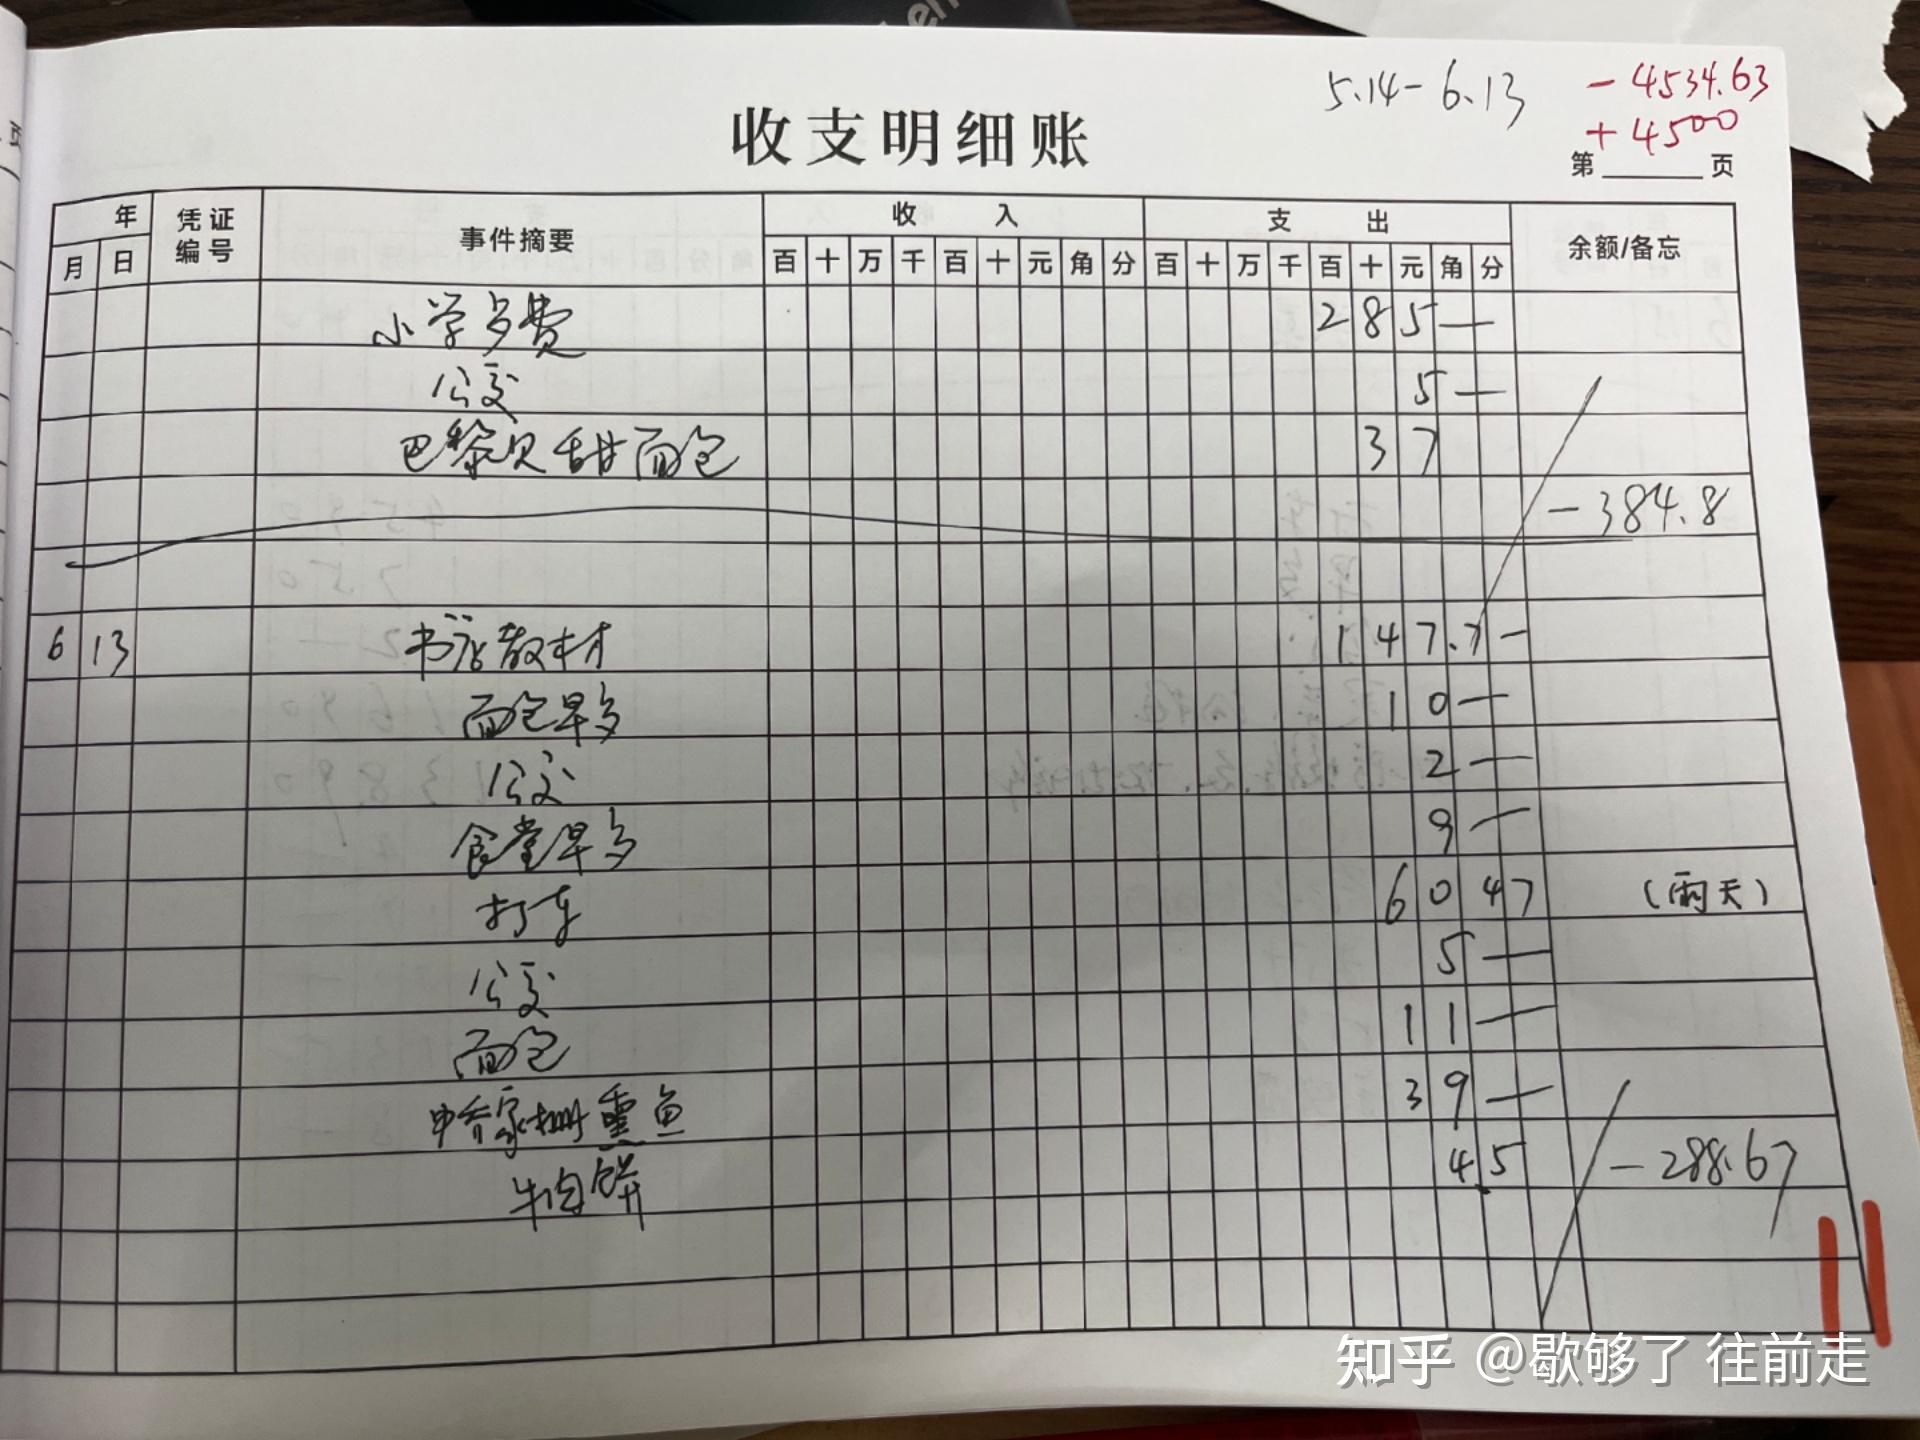 Len
5.14-6.13
-4534.63
+4500
收支明细账
第 页
年 凭证编号 事件摘要 收入 支出 余额/备忘
月 日 百 十 万 千 百 十 元 角 分 百 十 万 千 百 十 元 角 分
小学多费 285—
公交 5—
巴黎贝甜面包 37
-384.8
6 13 书店教材 147.7—
面包早多 10—
公交 2—
食堂早多 9—
打车 6047 (雨天)
公交 5—
面包 11—
申乔家栅熏鱼 39—
牛肉饼 4.5 -288.67
知乎 @歇够了 往前走